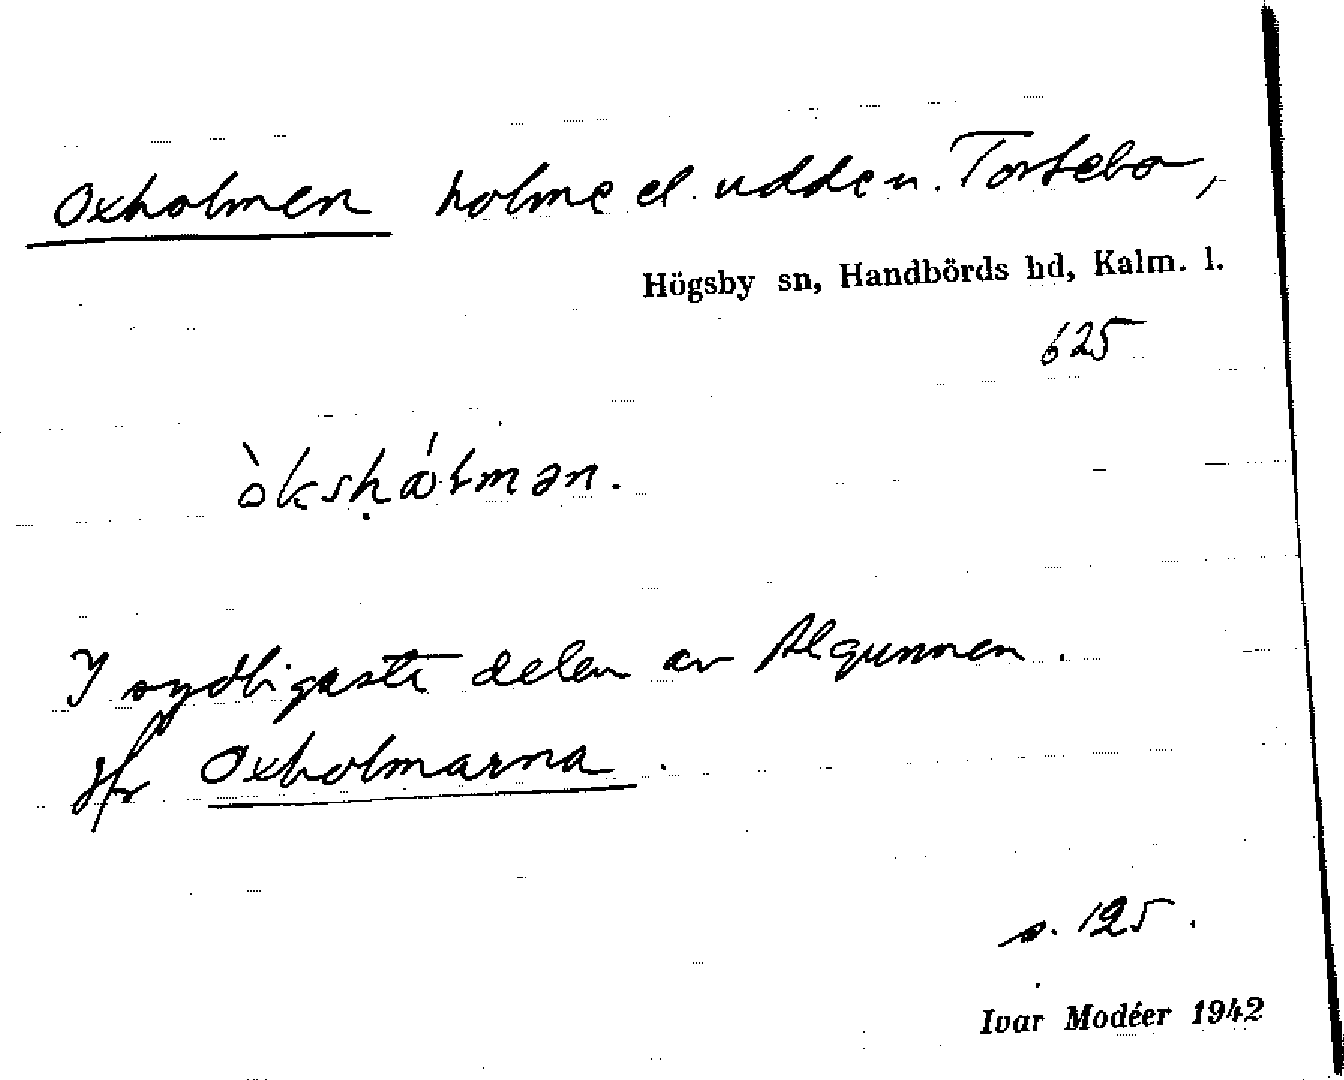 Oxholmen holme el. udde u. Torsebo,
Högsby sn, Handbörds hd, Kalm. l.
625
I sydligaste delen av Algunnen.
Jfr Oxholmarna.
s. 125.
Ivar Modéer 1942